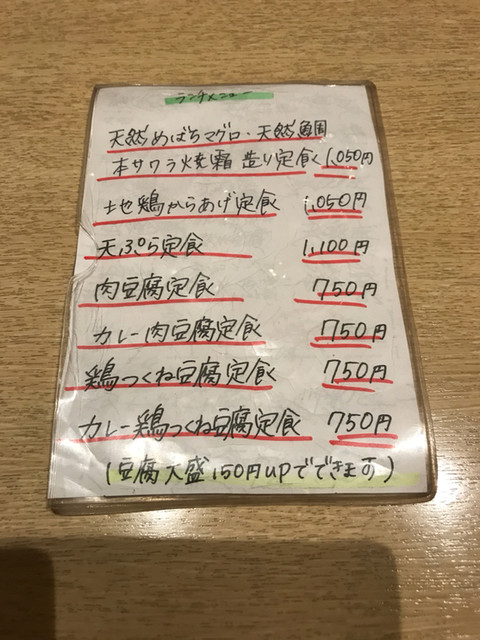 ランチメニュー
天然めばちマグロ・天然鯛
本サワラ焼霜 造り定食 1,050円
地鶏からあげ定食 1,050円
天ぷら定食 1,100円
肉豆腐定食 750円
カレー肉豆腐定食 750円
鶏つくね豆腐定食 750円
カレー鶏つくね豆腐定食 750円
(豆腐大盛150円UPでできます)